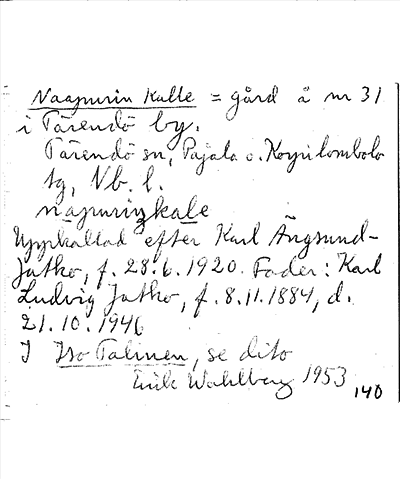 Naapurin Kalle = gård å nr 31
i Tärendö by.
Tärendö sn, Pajala o. Korpilombolo
tg, Nb. l.
Uppkallad efter Karl Ängsund-
Jatko, f. 28.6.1920. Fader: Karl
Ludvig Jatko, f. 8.11.1884, d.
21.10.1946
I Iso Talinen, se dito
Erik Wahlberg 1953
140